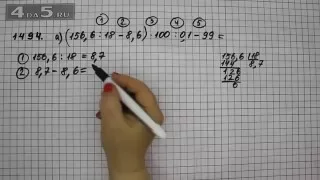 4DA5.RU
① ② ③ ④ ⑤
1494. а) (156,6 : 18 - 8,6) · 100 : 01 - 99 =
① 156,6 : 18 = 8,7
② 8,7 - 8,6 =
156,6 | 18
144 | 8,7
126
126
0